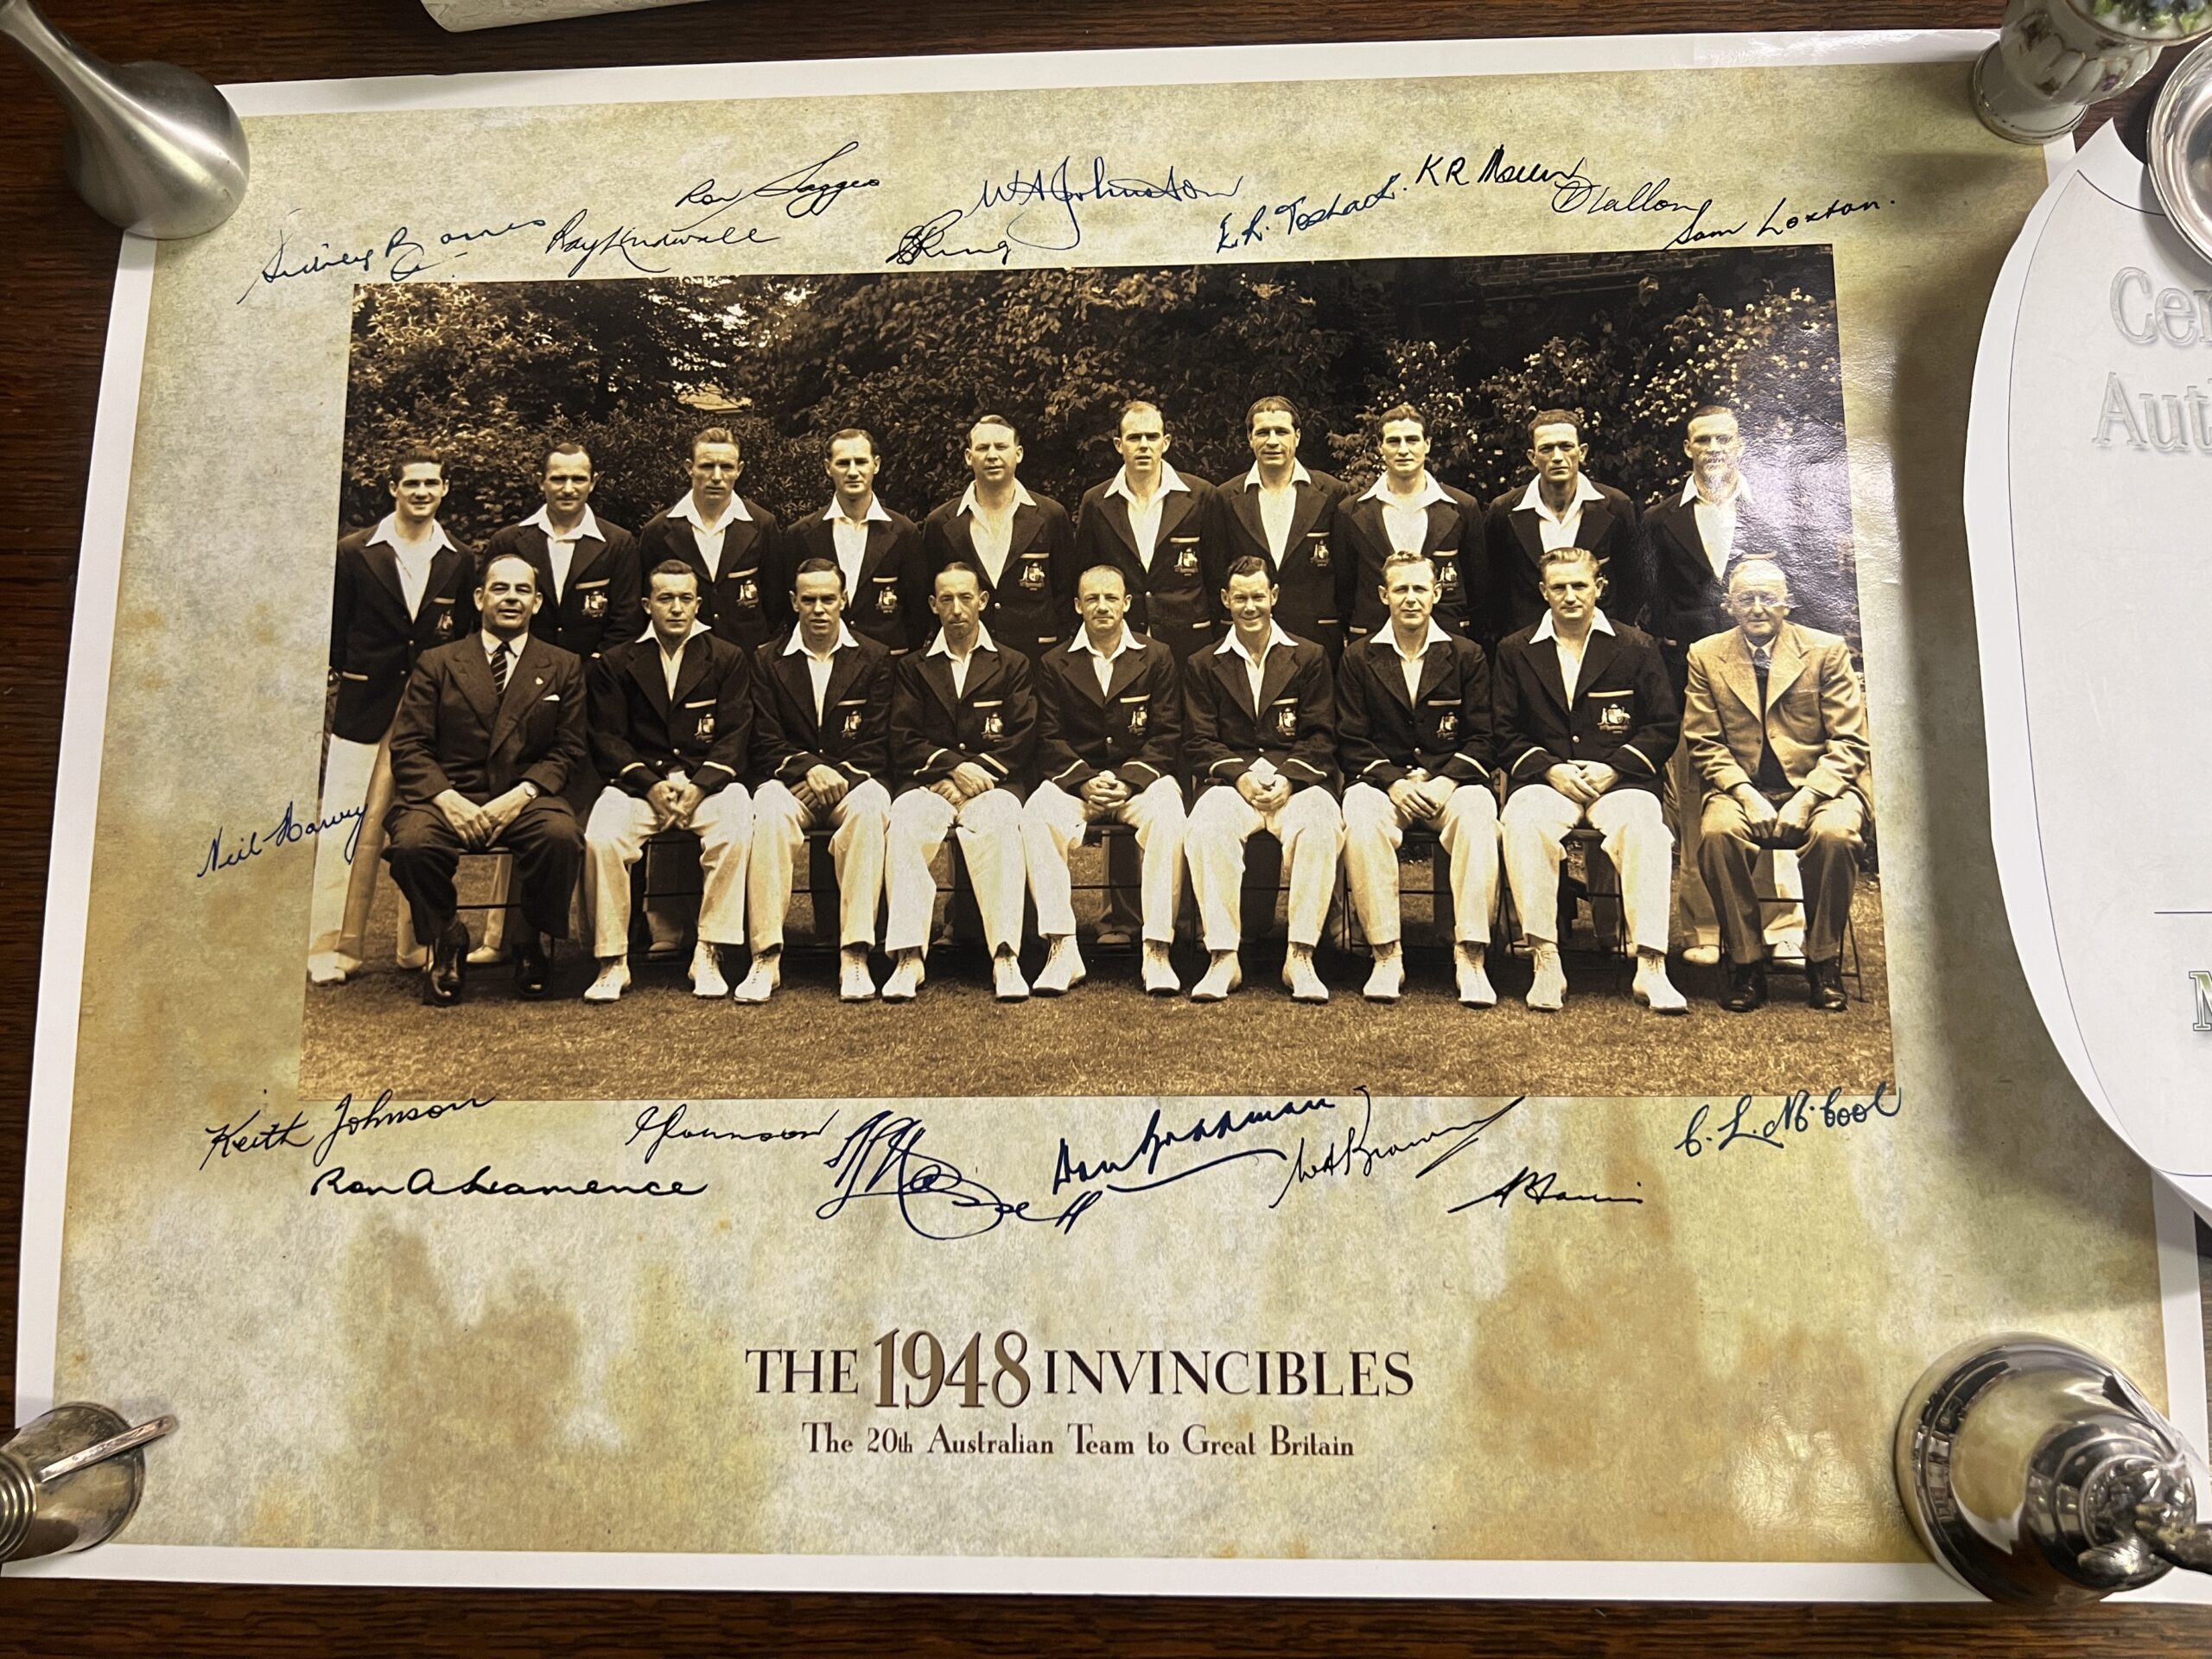 Ron Saggers
W A Johnston
K R Miller
Sidney G Barnes
Ray Lindwall
D Ring
E. R. Toshack.
D Tallon
Sam Loxton.
Neil Harvey
Keith Johnson
Don Bradman
W A Brown
C. L. McCool
Ron A Hamence
THE 1948 INVINCIBLES
The 20th Australian Team to Great Britain
Cer
Aut